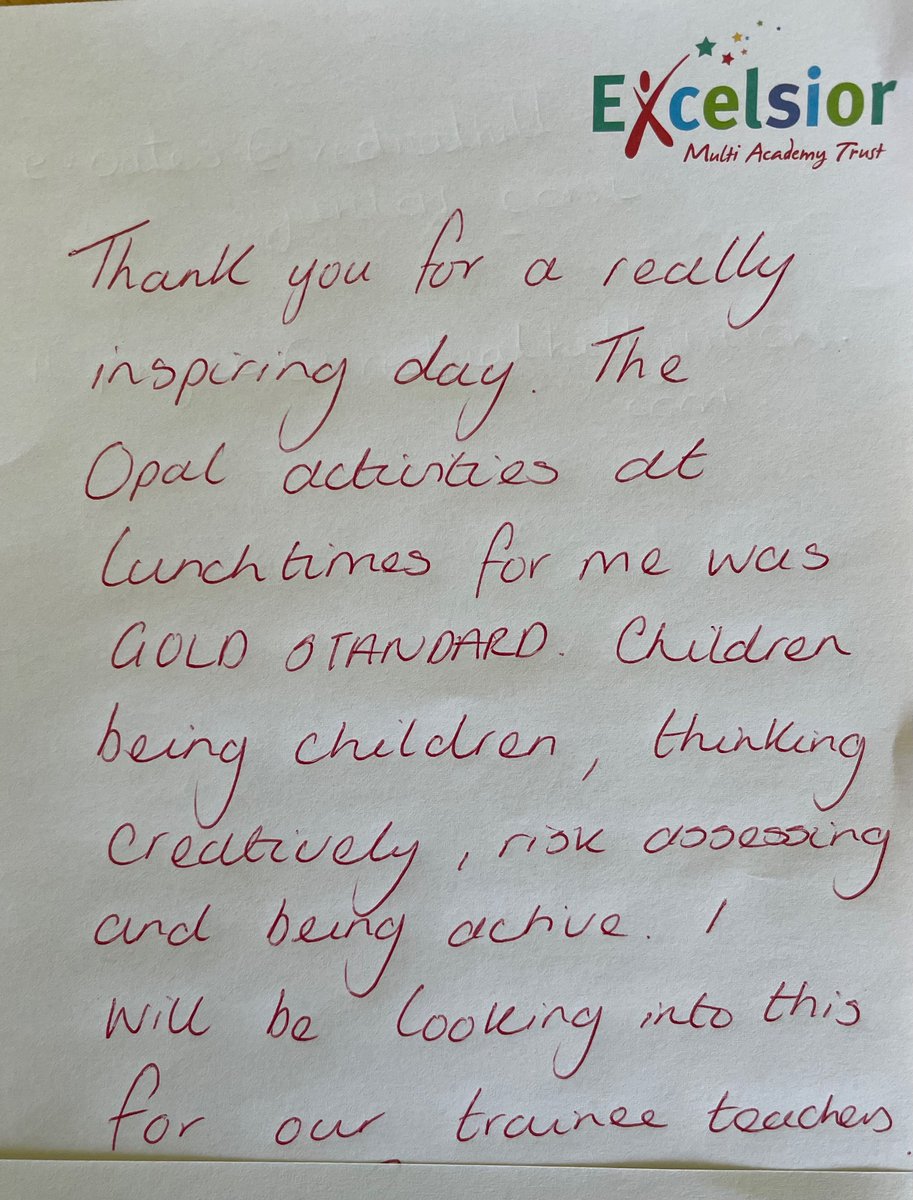 Excelsior
Multi Academy Trust
Thank you for a really
inspiring day. The
Opal activities at
lunchtimes for me was
GOLD STANDARD. Children
being children, thinking
creatively, risk assessing
and being active. I
will be looking into this
for our trainee teachers